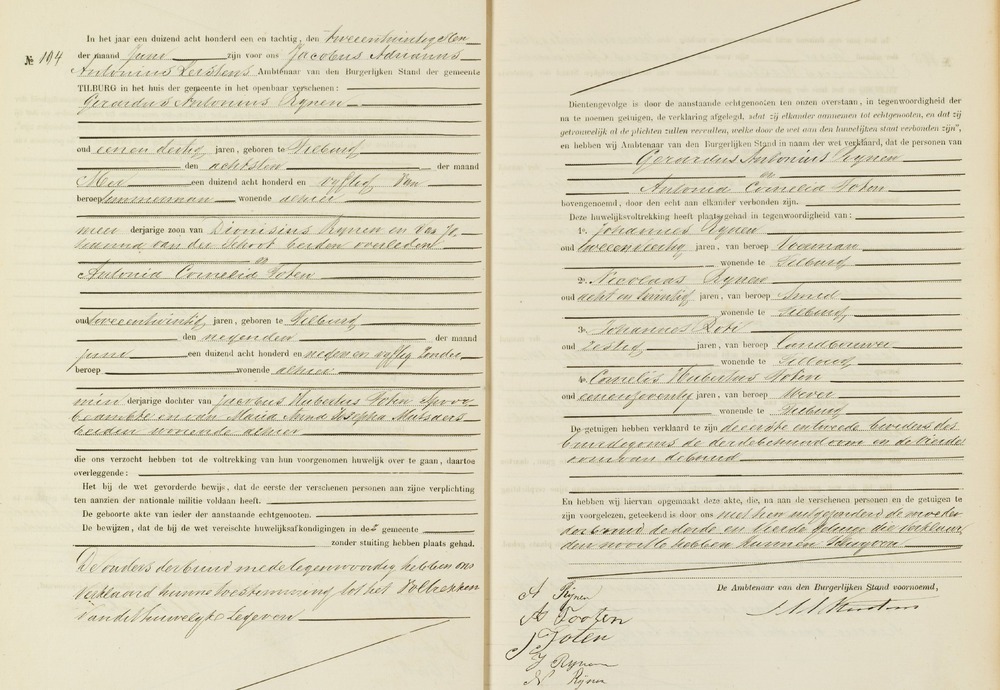 In het jaar een duizend acht honderd een en tachtig, den tweeentwintigsten
№ 194
der maand Juni zijn voor ons Jacobus Adrianus
Antonius Kerstens Ambtenaar van den Burgerlijken Stand der gemeente
TILBURG in het huis der gemeente in het openbaar verschenen:
Gerardus Antonius Rynen
oud eenen dertig jaren, geboren te Tilburg
den achtsten der maand
Mei een duizend acht honderd en vyftig van
beroep timmerman wonende alhier
meer derjarige zoon van Dionisius Rynen en van Jo-
hanna van der Schoot beiden overleden
en
Antonia Cornelia Toten
oud tweeentwintig jaren, geboren te Tilburg
den negenden der maand
Juni een duizend acht honderd en negen en vyftig zonder
beroep wonende alhier
min derjarige dochter van Jacobus Hubertus Toten Spoor-
beambte en van Maria Anna Josepha Mutsaers
beiden wonende alhier
die ons verzocht hebben tot de voltrekking van hun voorgenomen huwelijk over te gaan, daartoe
overleggende:
Het bij de wet gevorderde bewijs, dat de eerste der verschenen personen aan zijne verplichting
ten aanzien der nationale militie voldaan heeft.
De geboorte akte van ieder der aanstaande echtgenooten.
De bewijzen, dat de bij de wet vereischte huwelijksafkondigingen in deze gemeente
zonder stuiting hebben plaats gehad.
De ouders der bruid mede tegenwoordig hebben ons
verklaard hunne toestemming tot het voltrekken
van dit huwelijk te geven
Dientengevolge is door de aanstaande echtgenooten ten onzen overstaan, in tegenwoordigheid der
na te noemen getuigen, de verklaring afgelegd, „dat zij elkander aannemen tot echtgenooten, en dat zij
getrouwelijk al de plichten zullen vervullen, welke door de wet aan den huwelijken staat verbonden zijn”,
en hebben wij Ambtenaar van den Burgerlijken Stand in naam der wet verklaard, dat de personen van
Gerardus Antonius Rynen
en
Antonia Cornelia Toten
bovengenoemd, door den echt aan elkander verbonden zijn.
Deze huwelijksvoltrekking heeft plaats gehad in tegenwoordigheid van:
1e. Johannes Rynen
oud tweeendertig jaren, van beroep Voerman
wonende te Tilburg
2e. Nicolaas Rynen
oud acht en twintig jaren, van beroep Smid
wonende te Tilburg
3e. Johannes
oud zestig jaren, van beroep Landbouwer
wonende te Tilburg
4e. Cornelis Hubertus Toten
oud eenenzeventig jaren, van beroep Wever
wonende te Tilburg
De getuigen hebben verklaard te zijn de eerste en tweede broeders des
bruidegoms de derde behuwd oom en de vierde
oom van de bruid
En hebben wij hiervan opgemaakt deze akte, die, na aan de verschenen personen en de getuigen te
zijn voorgelezen, geteekend is door ons met hen uitgezonderd de moeder
der bruid de derde en vierde getuige die verklaar-
den
De Ambtenaar van den Burgerlijken Stand voornoemd,
Rynen
Tooten
J Toten
J Rynen
N Rynen